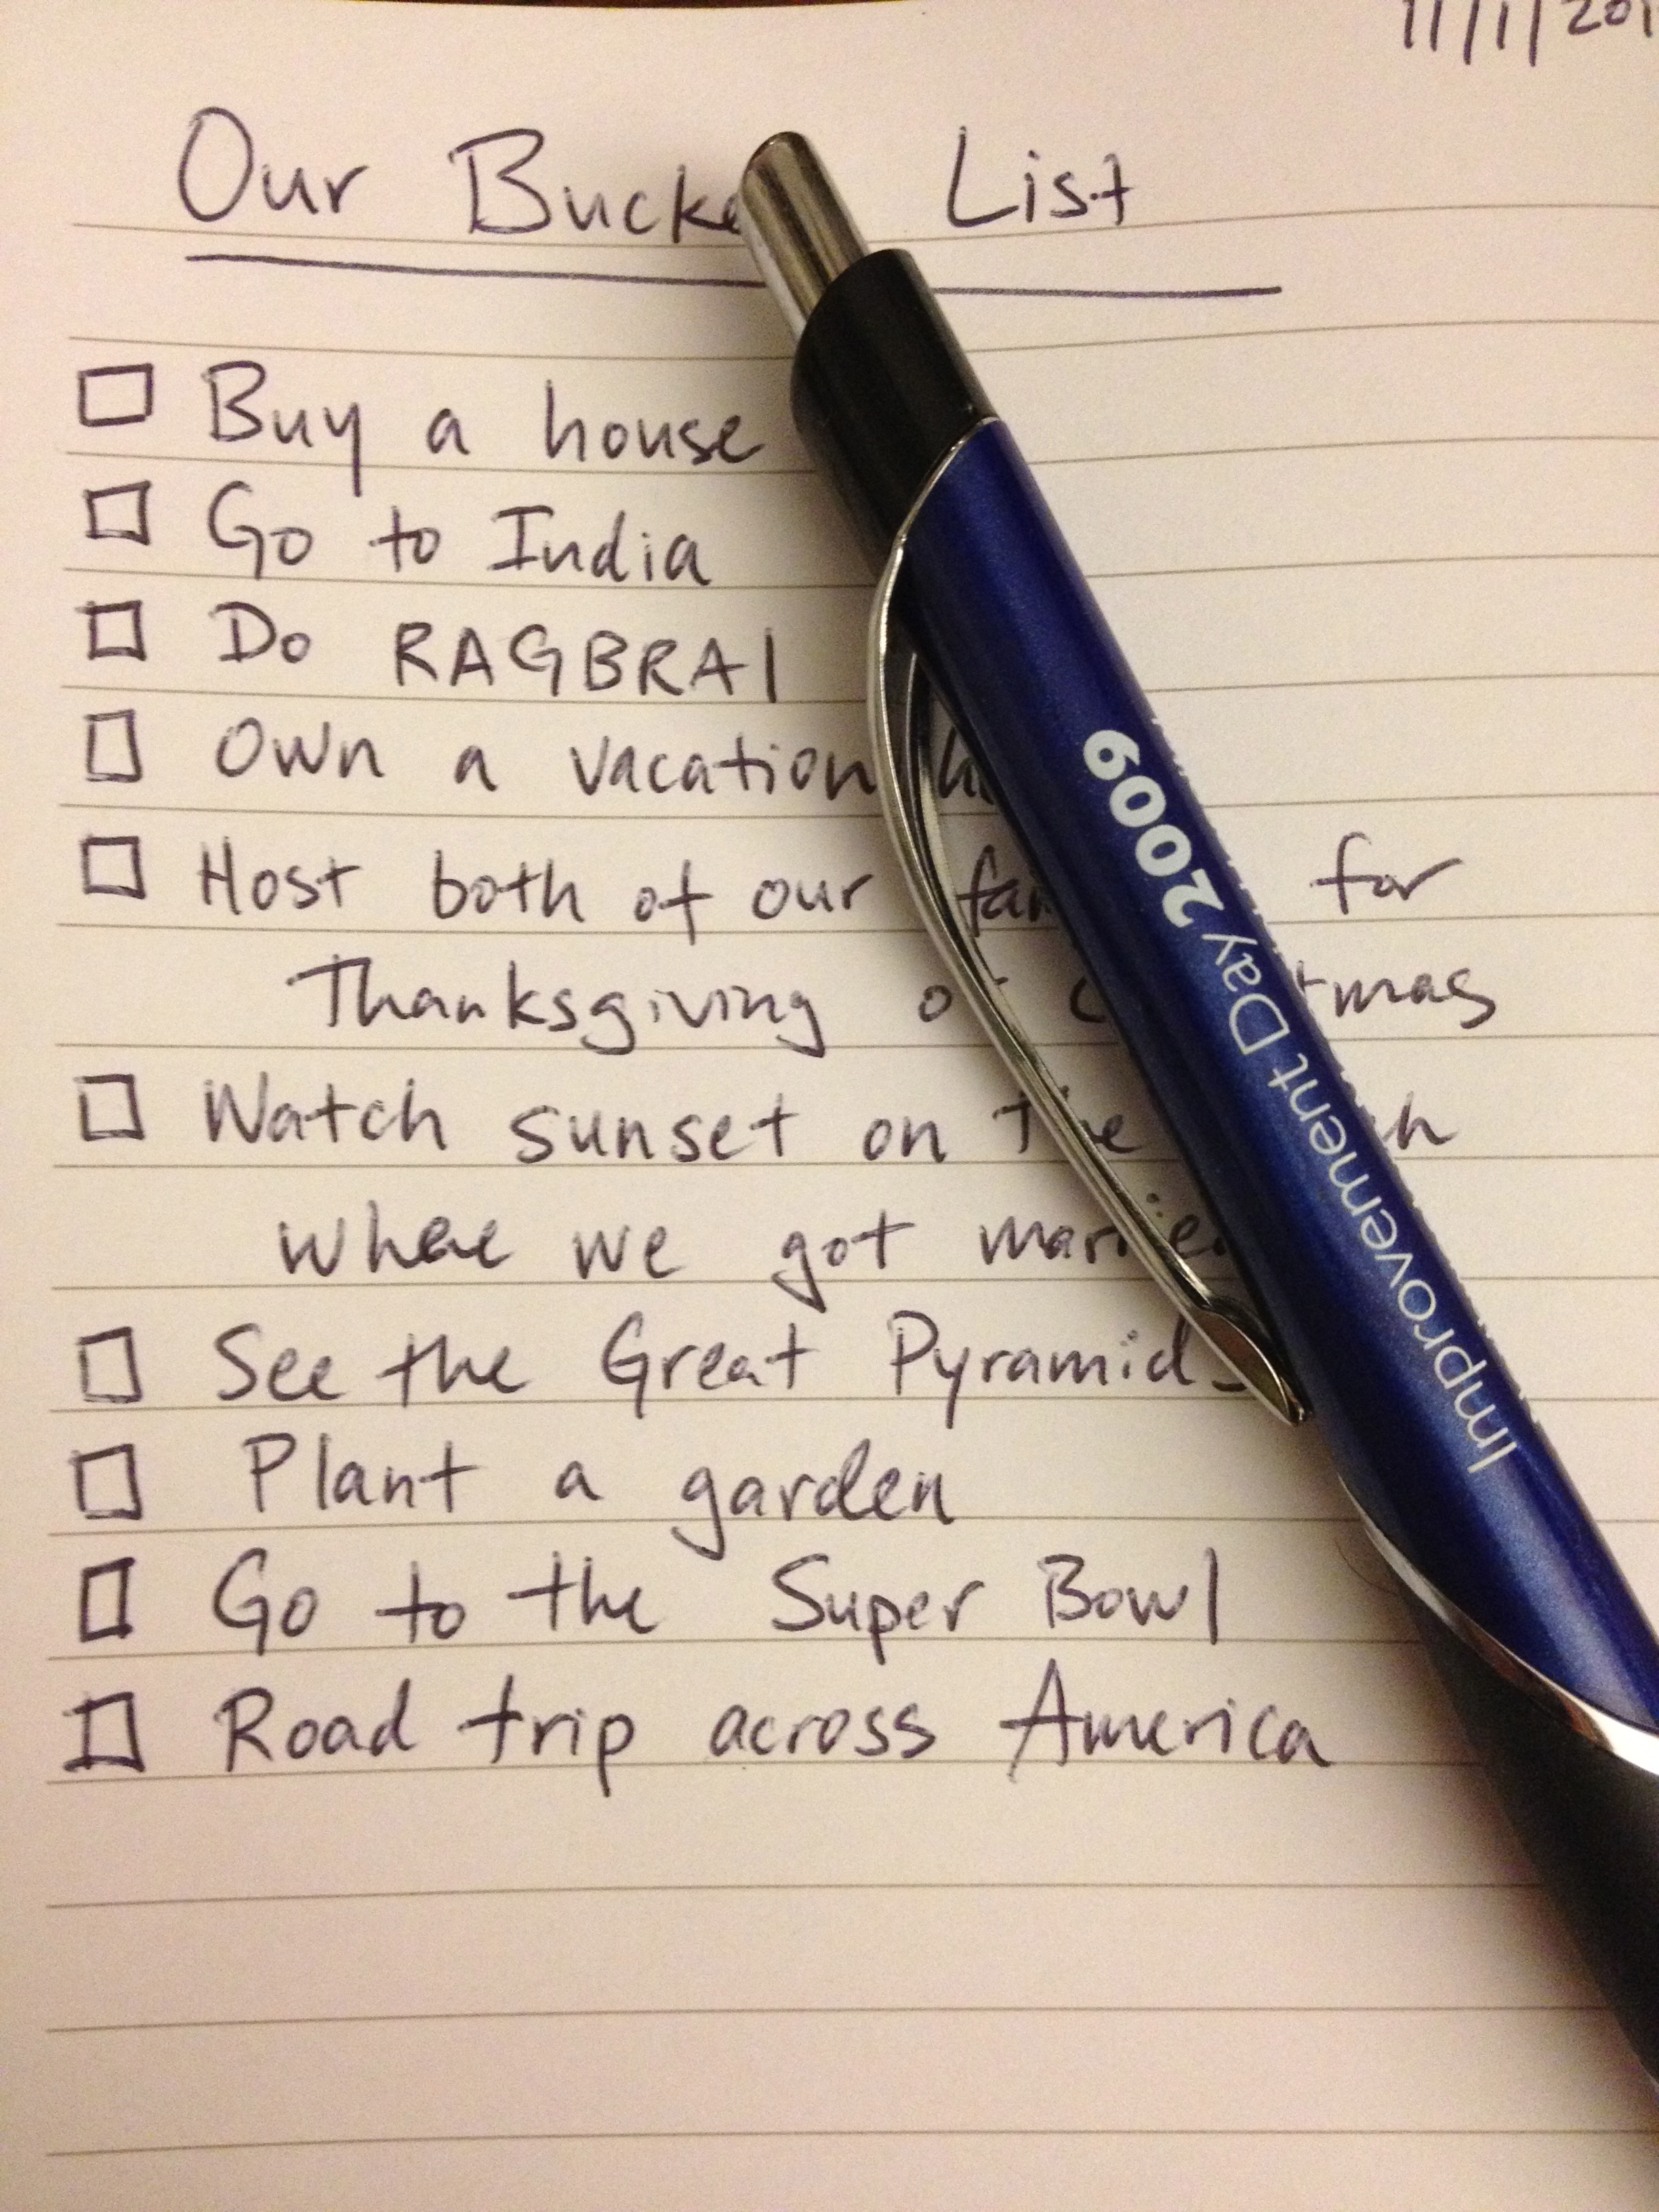 11/1/201
Our List
Buy a house
Go to India
Do RAGBRAI
Own a vacation
Host both of our for
Thanksgiving
Watch sunset on the
where we got married
See the Great Pyramids
Plant a garden
Go to the Super Bowl
Road trip across America
Improvement Day 2009